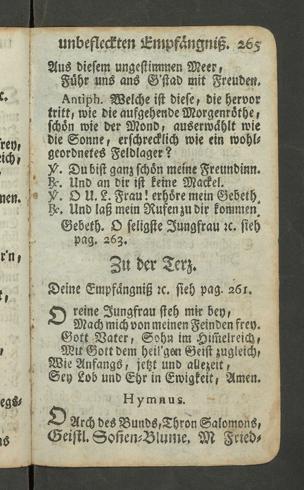 unbefleckten Empfängniß. 265
Aus diesem ungestimmen Meer,
Führ uns ans G'stad mit Freuden.
Antiph. Welche ist diese, die hervor
tritt, wie die aufgehende Morgenröthe,
schön wie der Mond, auserwählt wie
die Sonne, erschrecklich wie ein wohl-
geordnetes Feldlager?
℣. Du bist ganz schön meine Freundinn.
℟. Und an dir ist keine Mackel.
℣. O U. L. Frau! erhöre mein Gebeth
℟. Und laß mein Rufen zu dir kommen
Gebeth. O seligste Jungfrau ꝛc. sieh
pag. 263.
Zu der Terz.
Deine Empfängniß ꝛc. sieh pag. 261.
O reine Jungfrau steh mir bey,
Mach mich von meinen Feinden frey.
Gott Vater, Sohn im Him̃elreich,
Mit Gott dem heil'gen Geist zugleich,
Wie Anfangs, jetzt und allezeit,
Sey Lob und Ehr in Ewigkeit, Amen.
Hymnus.
O Arch des Bunds, Thron Salomons,
Geistl. Sofien-Blume, M Fried-